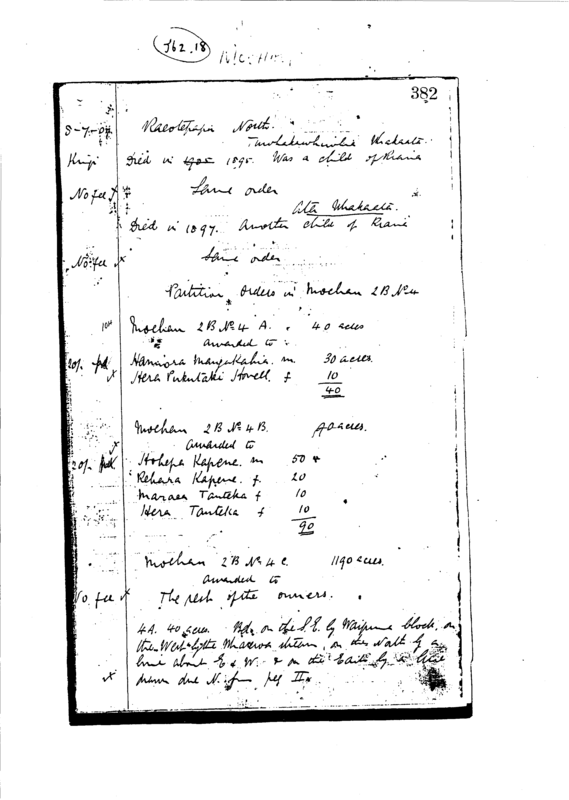 J62.18
382
8-7-04 Raeotepapa North.
Whakaata.
Died in 1905 1895. Was a child of Riaria
No fee Same order
Ata Whakaata.
Died in 1897. Another child of Riaria
No fee Same order
Partition Orders in Moehau 2B No 4
Moehau 2B No 4 A. 40 acres
awarded to
20/- pd Hamiora Mangakahia. m 30 acres.
Hera Pukutaki Howell. f 10
40
Moehau 2B No 4B. 90 acres.
awarded to
20/- pd Hohepa Kapene. m 50
Rehara Kapene. f. 20
Maraea Tauteka f 10
Hera Tauteka f 10
90
Moehau 2B No 4 C. 1190 acres.
awarded to
No fee The rest of the owners.
4A. 40 acres. Bdy. on the S.E. by block, on
the West by the stream, on the North by a
line about E & W. & on the East by a line
drawn due N. from peg II